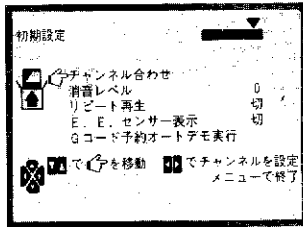 初期設定
チャンネル合わせ
消音レベル 0
リピート再生 切
E.E.センサー表示 切
Gコード予約オートデモ実行
▼▲で☞を移動 ◀▶でチャンネルを設定
メニューで終了